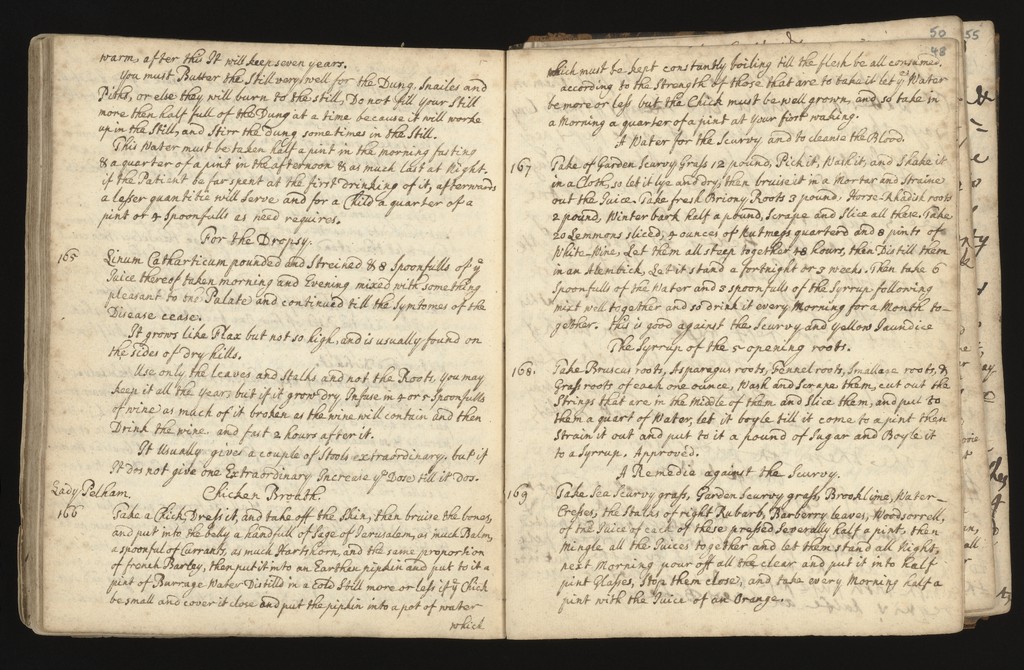 warm, after this It will keep seven years.
You must Butter the Still very well for the Dung, Snailes and
Piths, or else they will burn to the still, Do not fill your Still
more then half full of the Dung at a time because it will worke
up in the Still, and Stirr the Dung some times in the Still.
This Water must be taken half a pint in the morning fasting
& a quarter of a pint in the afternoon & as much Last at Night.
if the Patient be far spent at the first drinking of it, afterwards
a lesser quantitie will serve and for a Child a quarter of a
pint or 4 Spoonfulls as need requires.
For the Dropsy.
165
Linum Catharticum pounded and Streined & 8 Spoonfulls of ye
Juice thereof taken morning and Evening mixed with something
pleasant to the Palate and continued till the Symtomes of the
Disease cease.
It grows like Flax but not so high, and is usually found on
the sides of dry hills.
Use only the leaves and Stalks and not the Roots, you may
keep it all the year, but if it grow dry Infuse in 4 or 5 Spoonfulls
of wine as much of it broken as the wine will contain and then
Drink the wine and fast 2 hours after it.
It Usually gives a couple of Stools extraordinary. but if
It dos not give one Extraordinary Increase ye Dose till it Dos.
Lady Pelham. Chicken Broath.
166
Take a Chick, Dress it, and take off the Skin, then bruise the bones,
and put into the belly a handfull of Sage of Jerusalem, as much Balm,
a spoonful of Currants, as much Hartshorn, and the same proportion
of french Barley, then put it into an Earthen pipkin and put to it a
pint of Burrage Water Distilld in a Cold Still more or less if ye Chick
be small and cover it close and put the pipkin into a pot of water
which
50
48
55
which must be kept constantly boiling till the flesh be all consumed.
according to the Strength of those that are to take it let ye Water
be more or less but the Chick must be well grown, and so take in
a Morning a quarter of a pint at your first waking.
A Water for the Scurvy and to cleanse the Blood.
167
Take of Garden Scurvy Grass 12 pound, Pick it, Wash it, and Shake it
in a Cloth, so let it lye and dry, then bruise it in a Mortar and Straine
out the Juice. Take fresh Briony Roots 3 pound, Horse-Rhadish roots
2 pound, Winter bark half a pound, Scrape and Slice all these. Take
20 Lemmons sliced, 4 ounces of Nutmegs quarterd and 8 pints of
White-Wine, Let them all steep together 48 hours, then Distill them
in an Alembick, Let it stand a fortnight or 3 weeks. Then take 6
Spoonfulls of the Water and 3 spoonfulls of the Syrrup following
mixt well together and so drink it every Morning for a Month to-
gether. this is good against the Scurvy and Yellow Jaundice
The Syrrup of the 5 opening roots.
168.
Take Bruscus roots, Asparagus roots, Fennel roots, Smallage roots, &
Grass roots of each one ounce, Wash and Scrape them, cut out the
Strings that are in the Middle of them and Slice them, and put to
them a quart of Water, let it boyle till it come to a pint then
Strain it out and put to it a pound of Sugar and Boyle it
to a Syrrup. Approved.
A Remedie against the Scurvy.
169
Take Sea Scurvy grass, Garden Scurvy grass, Brooklime, Water-
Cresses, the Stalks of right Rubarb, Barberry leaves, Woodsorrell,
of the Juice of each of these pressed Severally half a pint, then
Mingle all the Juices together and let them stand all Night,
next Morning pour off all the clear and put it into half
pint Glasses, Stop them close, and take every Morning half a
pint with the Juice of an Orange.